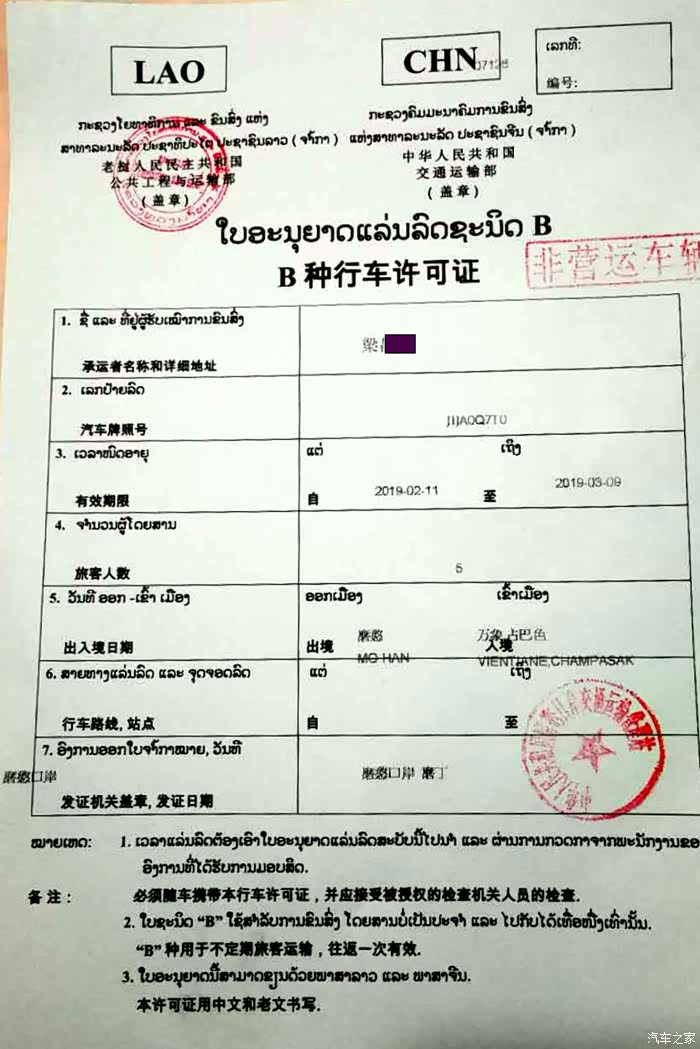 LAO
CHN
07126
ເລກທີ:
编号:
ກະຊວງໂຍທາທິການ ແລະ ຂົນສົ່ງ ແຫ່ງ
ສາທາລະນະລັດ ປະຊາທິປະໄຕ ປະຊາຊົນລາວ (ຈ້ຳກາ)
老挝人民民主共和国
公共工程与运输部
(盖章)
ກະຊວງຄົມມະນາຄົມການຂົນສົ່ງ
ແຫ່ງສາທາລະນະລັດ ປະຊາຊົນຈີນ (ຈ້ຳກາ)
中华人民共和国
交通运输部
(盖章)
ໃບອະນຸຍາດແລ່ນລົດຊະນິດ B
B 种行车许可证
非营运车辆
1. ຊື່ ແລະ ທີ່ຢູ່ຜູ້ຮັບເໝົາການຂົນສົ່ງ
承运者名称和详细地址
梁
2. ເລກປ້າຍລົດ
汽车牌照号
川A0Q7T0
3. ເວລາໝົດອາຍຸ
ແຕ່
ເຖິງ
有效期限
自
2019-02-11
至
2019-03-09
4. ຈຳນວນຜູ້ໂດຍສານ
旅客人数
5
5. ວັນທີ ອອກ -ເຂົ້າ ເມືອງ
ອອກເມືອງ
ເຂົ້າເມືອງ
出入境日期
出境
磨憨
MO HAN
入境
万象,占巴色
VIENTIANE,CHAMPASAK
6. ສາຍທາງແລ່ນລົດ ແລະ ຈຸດຈອດລົດ
ແຕ່
ເຖິງ
行车路线, 站点
自
至
7. ອົງການອອກໃບຈ້ຳກາໝາຍ, ວັນທີ
磨憨口岸
磨憨口岸 磨丁
发证机关盖章, 发证日期
ໝາຍເຫດ:
1. ເວລາແລ່ນລົດຕ້ອງເອົາໃບອະນຸຍາດແລ່ນລົດສະບັບນີ້ໄປນຳ ແລະ ຜ່ານການກວດກາຈາກພະນັກງານຂອ
ອົງການທີ່ໄດ້ຮັບການມອບສິດ.
备 注:
必须随车携带本行车许可证，并应接受被授权的检查机关人员的检查.
2. ໃບຊະນິດ “B” ໃຊ້ສຳລັບການຂົນສົ່ງ ໂດຍສານບໍ່ເປັນປະຈຳ ແລະ ໄປກັບໄດ້ເທື່ອໜຶ່ງເທົ່ານັ້ນ.
“B” 种用于不定期旅客运输，往返一次有效.
3. ໃບອະນຸຍາດນີ້ສາມາດຂຽນດ້ວຍພາສາລາວ ແລະ ພາສາຈີນ.
本许可证用中文和老文书写.
汽车之家